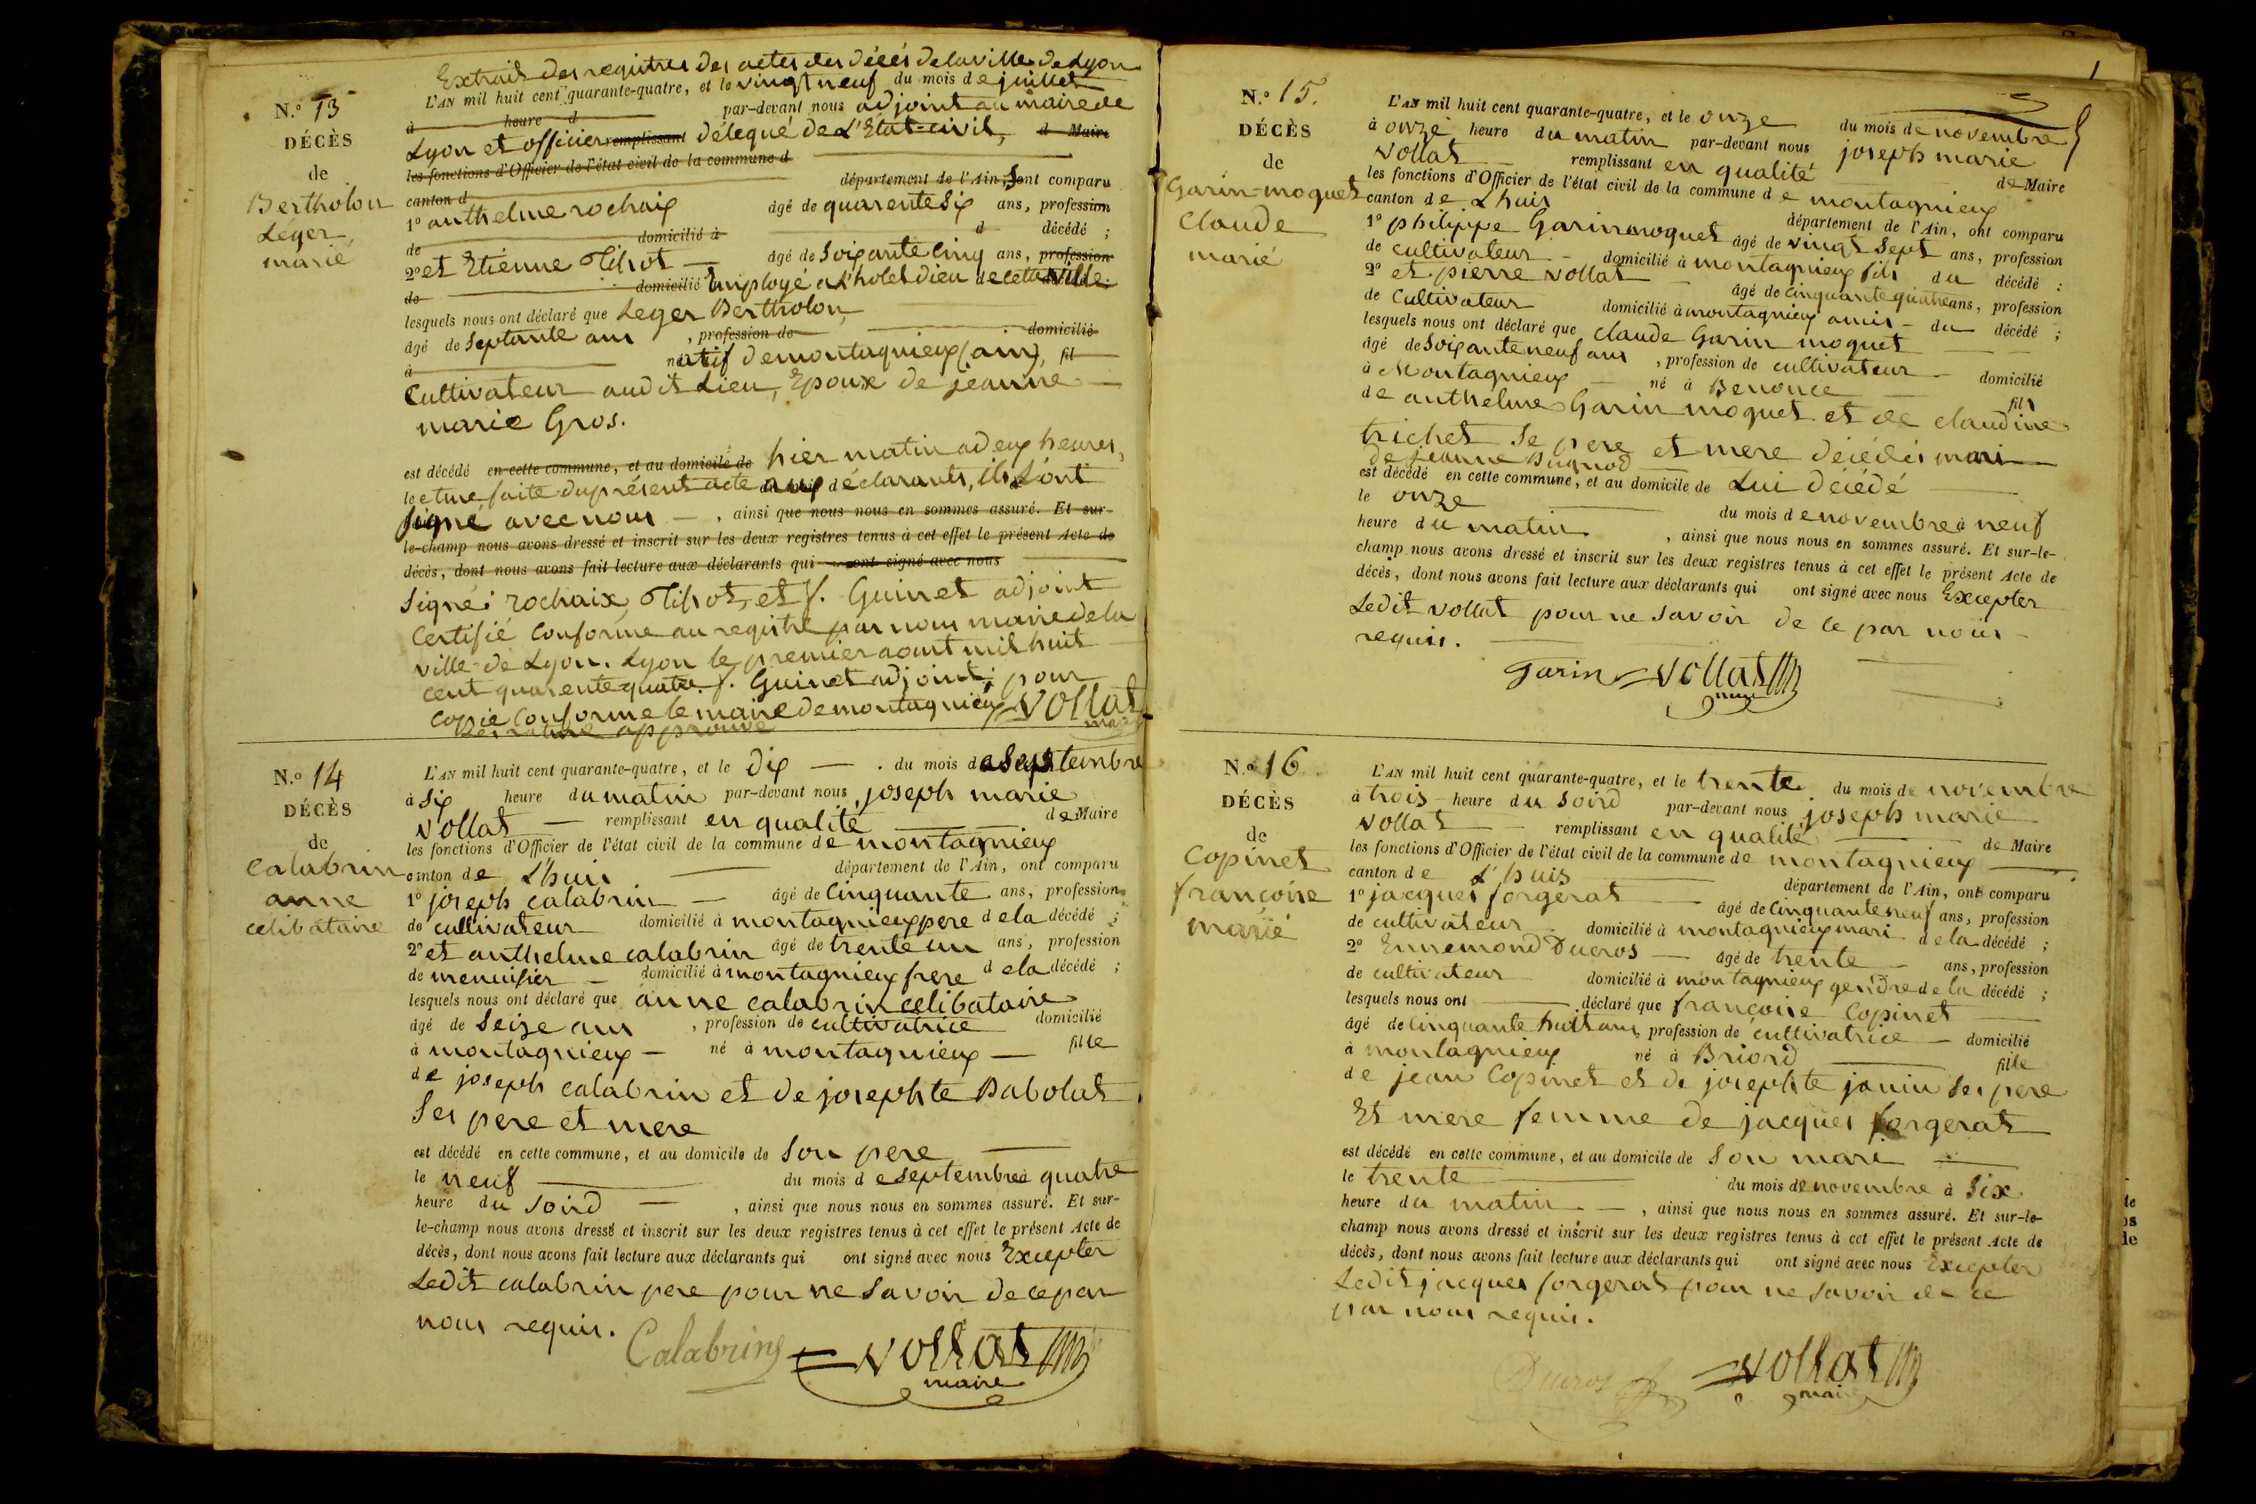 Extrait des registres des actes des décés de la ville de Lyon
N.o 13
DÉCÈS
de
Bertholon
Leger
marié
L'AN mil huit cent quarante-quatre, et le vingt neuf du mois de juillet
à heure d par-devant nous adjoint au maire de
Lyon et officier remplissant délégué de L'Etat-civil, d Maire
les fonctions d'Officier de l'état civil de la commune d
canton d département de l'Ain, Sont comparu
1o anthelme rochaix âgé de quarente Six ans, profession
de domicilié à d décédé ;
2o et Etienne Tihot âgé de Soixante cinq ans, profession
de domicilié Employé a L'hotel dieu de cette ville.
lesquels nous ont déclaré que Leger Bertholon,
âgé de Septante ans , profession de domicilié
à natif de montagnieux (ain), fil
Cultivateur audit Lieu, Epoux de jeanne
marie Gros.
est décédé en cette commune, et au domicile de hier matin a deux heures,
lecture faite du présent acte aux déclarants, ils L'ont
signé avec nous , ainsi que nous nous en sommes assuré. Et sur-
le-champ nous avons dressé et inscrit sur les deux registres tenus à cet effet le présent Acte de
décès, dont nous avons fait lecture aux déclarants qui ont signé avec nous
Signé: rochaix, Tihot, et f. Guinet adjoint
Certifié Conforme au registre par nous maire de la
ville de Lyon. Lyon le premier aout mil huit
cent quarente quatre. f. Guinet adjoint; pour
Copie Conforme le maire de montagnieux Vollat
maire
approuvé
N.o 14
DÉCÈS
de
Calabrin
anne
celibataire
L'AN mil huit cent quarante-quatre, et le dix du mois de Septembre
à Six heure du matin par-devant nous joseph marie
Vollat remplissant en qualité de Maire
les fonctions d'Officier de l'état civil de la commune de montagnieux
canton de L'huis département de l'Ain, ont comparu
1o joseph calabrin âgé de Cinquante ans, profession
de cultivateur domicilié à montagnieux pere de la décédé ;
2o et anthelme calabrin âgé de trente un ans, profession
de menuisier domicilié à montagnieux frere de la décédé ;
lesquels nous ont déclaré que anne calabrin celibataire
âgé de Seize ans , profession de cultivatrice domicilié
à montagnieux né à montagnieux fille
de joseph calabrin et de josephte Babolat
Ses pere et mere
est décédé en cette commune, et au domicile de Son pere
le neuf du mois de septembre à quatre
heure du Soird , ainsi que nous nous en sommes assuré. Et sur-
le-champ nous avons dressé et inscrit sur les deux registres tenus à cet effet le présent Acte de
décès, dont nous avons fait lecture aux déclarants qui ont signé avec nous Excepter
Ledit calabrin pere pour ne Savoir de ce par
nous requis.
Calabrin Vollat
maire
N.o 15.
DÉCÈS
de
Garin-moquet
Claude
marié
L'AN mil huit cent quarante-quatre, et le onze du mois de novembre
à onze heure du matin par-devant nous joseph marie
Vollat remplissant en qualité de Maire
les fonctions d'Officier de l'état civil de la commune de montagnieux
canton de Lhuis département de l'Ain, ont comparu
1o philippe Garin moquet âgé de vingt Sept ans, profession
de cultivateur domicilié à montagnieux fils du décédé ;
2o et pierre Vollat âgé de cinquante quatre ans, profession
de Cultivateur domicilié à montagnieux amis du décédé ;
lesquels nous ont déclaré que Claude Garin moquet
âgé de Soixante neuf ans , profession de cultivateur domicilié
à Montagnieux né à Benonce fils
de anthelme Garin moquet et de claudine
trichet Se pere et mere décédés mari
de jeanne Bugnod
est décédé en cette commune, et au domicile de Lui décédé
le onze du mois de novembre à neuf
heure du matin , ainsi que nous nous en sommes assuré. Et sur-le-
champ nous avons dressé et inscrit sur les deux registres tenus à cet effet le présent Acte de
décès, dont nous avons fait lecture aux déclarants qui ont signé avec nous Excepter
Ledit Vollat pour ne Savoir de ce par nous
requis.
Garin Vollat
maire
N.o 16.
DÉCÈS
de
Copinet
françoise
marié
L'AN mil huit cent quarante-quatre, et le trente du mois de novembre
à trois heure du Soird par-devant nous joseph marie
Vollat remplissant en qualité de Maire
les fonctions d'Officier de l'état civil de la commune de montagnieux
canton de L'huis département de l'Ain, ont comparu
1o jacques forgerat âgé de Cinquante neuf ans, profession
de cultivateur domicilié à montagnieux mari de la décédé ;
2o Ennemond Ducros âgé de trente ans, profession
de cultivateur domicilié à montagnieux gendre de la décédé ;
lesquels nous ont déclaré que françoise Copinet
âgé de Cinquante huit ans, profession de cultivatrice domicilié
à montagnieux né à Briord fille
de jean Copinet et de josephte janin Ses pere
Et mere femme de jacques forgerat
est décédé en cette commune, et au domicile de Son mari
le trente du mois de novembre à Six
heure du matin , ainsi que nous nous en sommes assuré. Et sur-le-
champ nous avons dressé et inscrit sur les deux registres tenus à cet effet le présent Acte de
décès, dont nous avons fait lecture aux déclarants qui ont signé avec nous Excepter
Ledit jacques forgerat pour ne Savoir de ce
par nous requis.
Ducros Vollat
maire